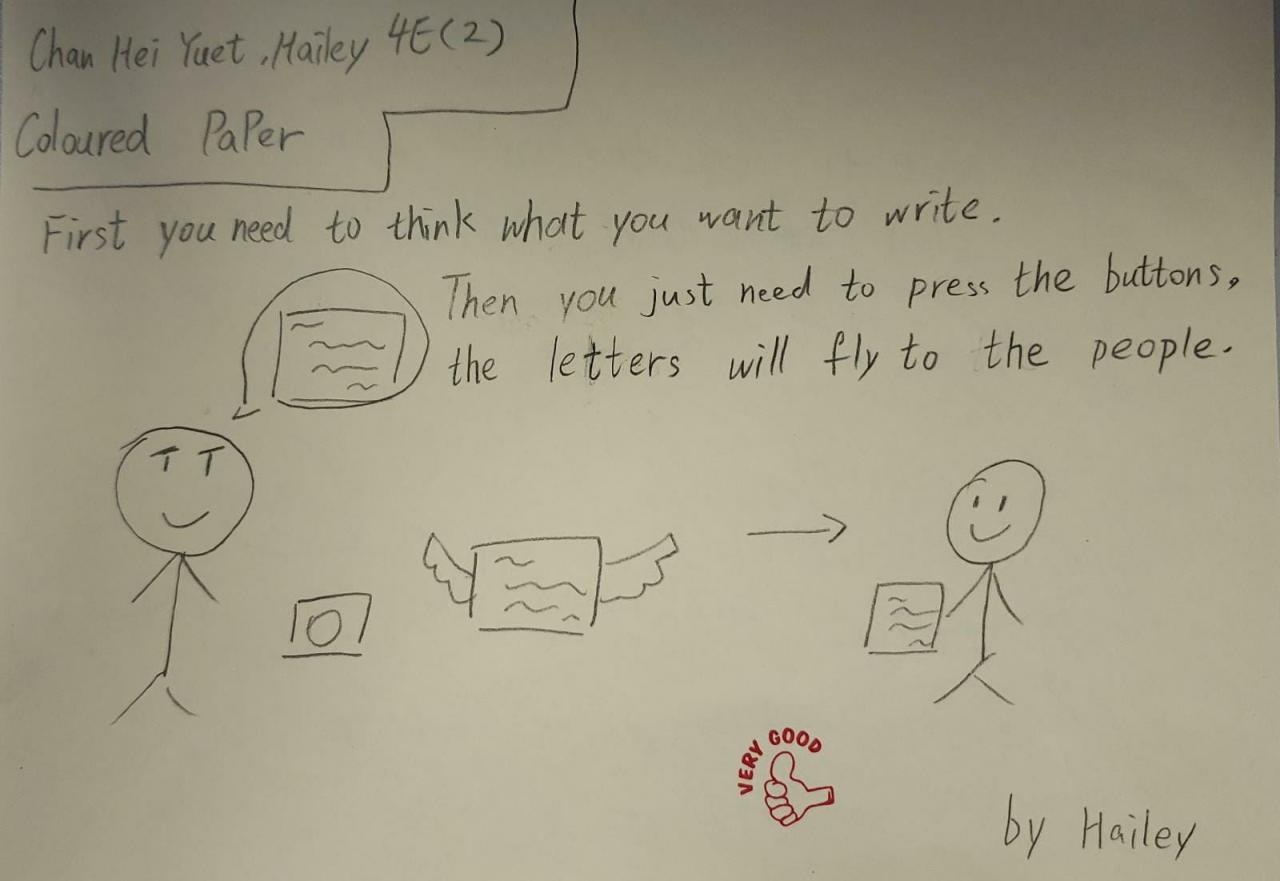 Chan Hei Yuet, Hailey 4E(2)
Coloured PaPer
First you need to think what you want to write.
Then you just need to press the buttons,
the letters will fly to the people.
VERY GOOD
by Hailey